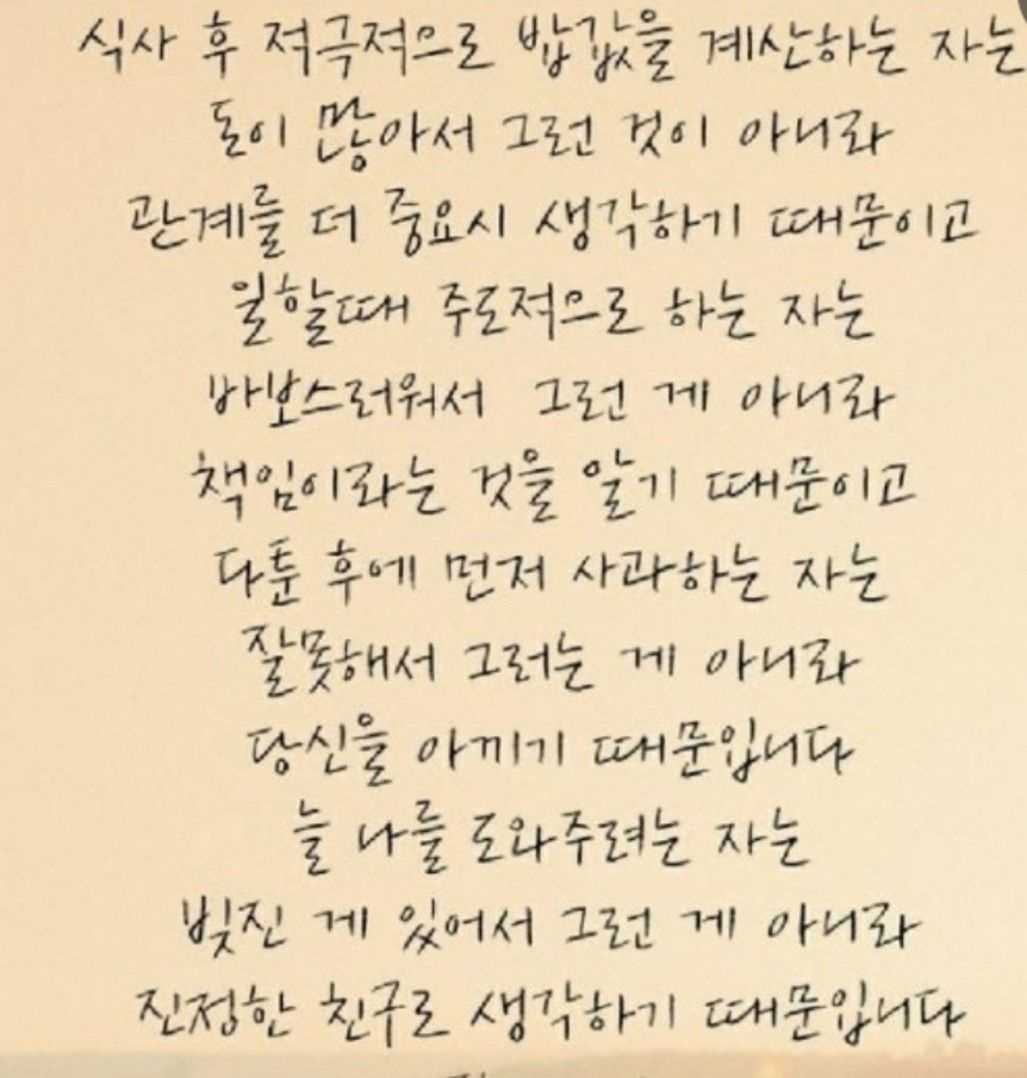 식사 후 적극적으로 밥값을 계산하는 자는
돈이 많아서 그런 것이 아니라
관계를 더 중요시 생각하기 때문이고
일할때 주도적으로 하는 자는
바보스러워서 그런 게 아니라
책임이라는 것을 알기 때문이고
다툰 후에 먼저 사과하는 자는
잘못해서 그러는 게 아니라
당신을 아끼기 때문입니다
늘 나를 도와주려는 자는
빚진 게 있어서 그런 게 아니라
진정한 친구로 생각하기 때문입니다